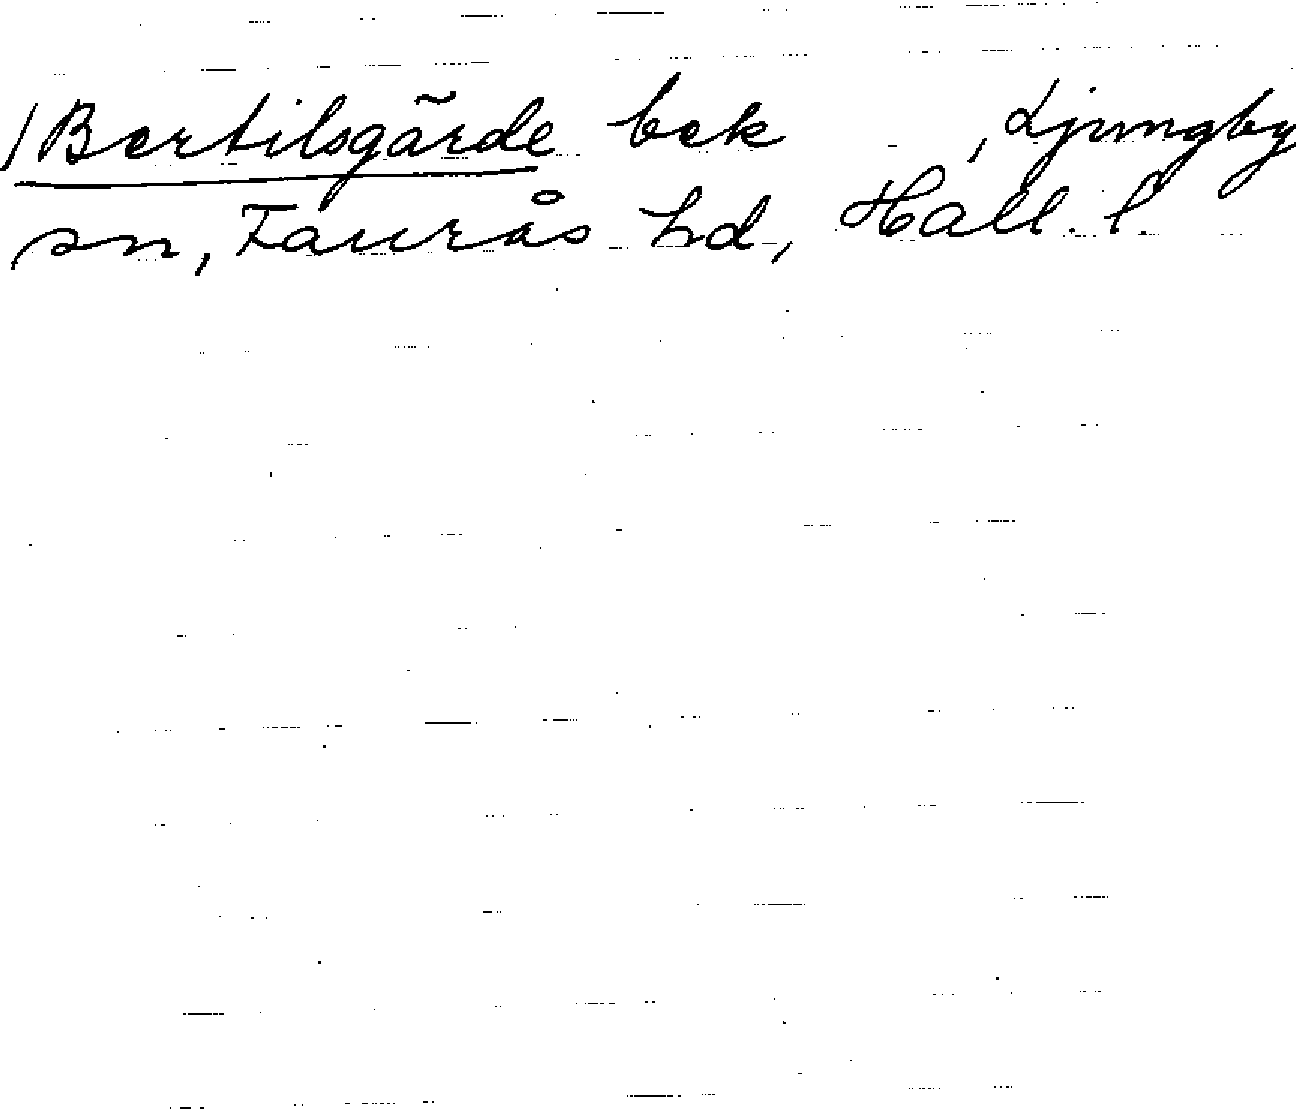 /Bertilsgärde bek , Ljungby
sn, Faurås hd, Hall. l.